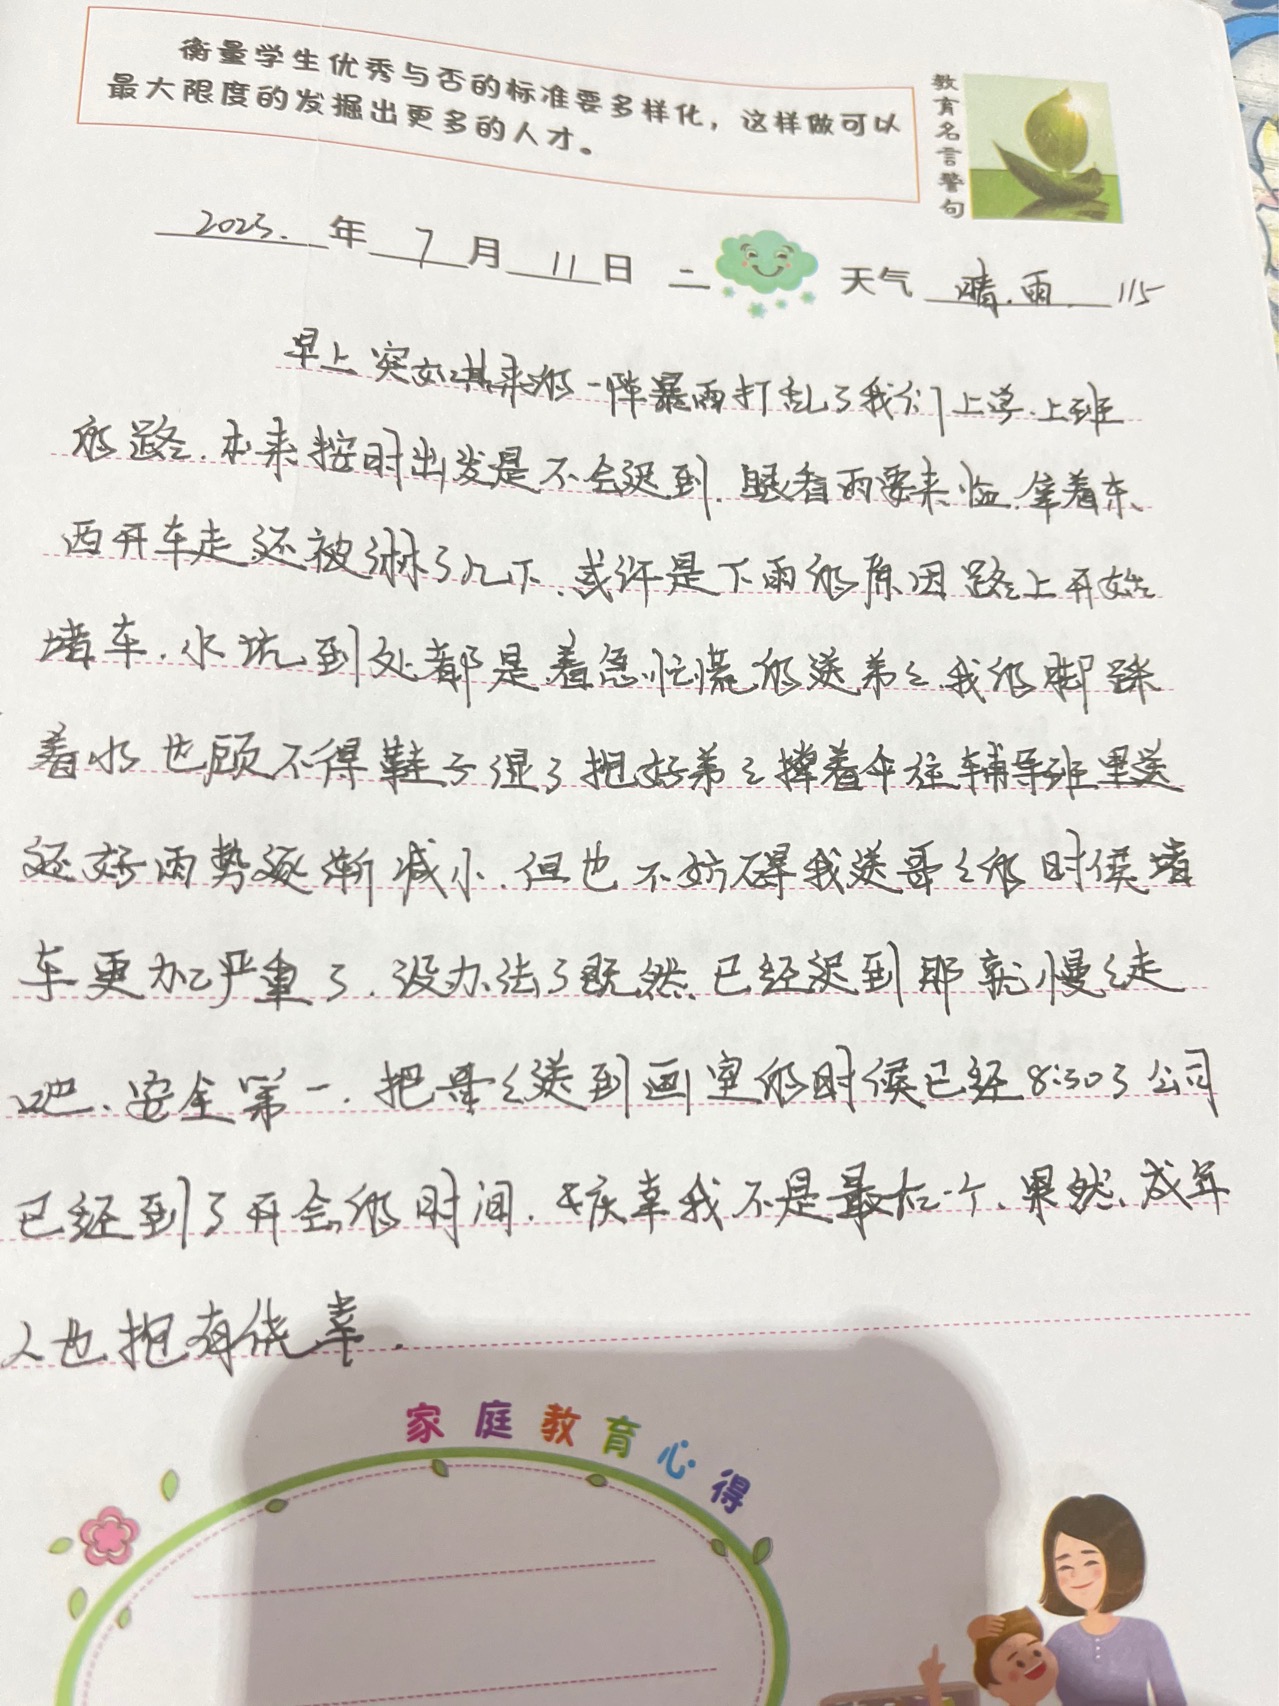 衡量学生优秀与否的标准要多样化，这样做可以
最大限度的发掘出更多的人才。
教育名言警句
2023.年 7 月 11 日 二 天气 晴.雨. 115
早上突如其来的一阵暴雨打乱了我们上学.上班
的路.本来按时出发是不会迟到.眼看雨要来临.拿着东
西开车走还被淋了几下.或许是下雨的原因路上开始
堵车.水坑到处都是.着急忙慌的送弟々.我的脚踩
着水也顾不得鞋子湿了抱好弟々撑着伞往辅导班里送
还好雨势逐渐减小.但也不妨碍我送哥々的时候堵
车更加严重了.没办法了既然已经迟到那就慢々走
吧.安全第一.把哥々送到画室的时候已经8:30了公司
已经到了开会的时间.庆幸我不是最后一个.果然.成年
人也抱有侥幸.
家庭教育心得